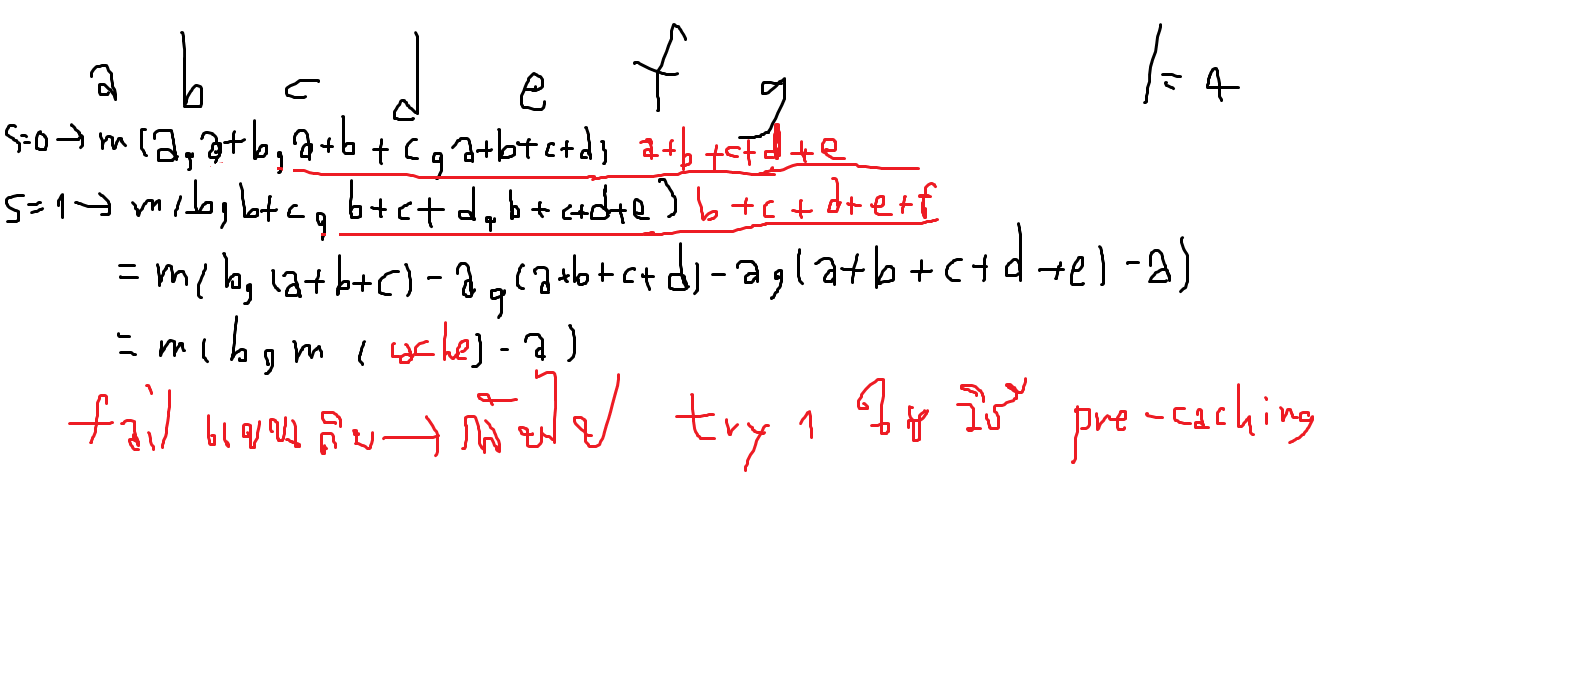 a b c d e f g l = 4
s=0 → m(a, a+b, a+b+c, a+b+c+d) a+b+c+d+e
s=1 → m(b, b+c, b+c+d, b+c+d+e) b+c+d+e+f
= m(b, (a+b+c)-a, (a+b+c+d)-a, (a+b+c+d+e)-a)
= m(b, m(cache)-a)
fail → try 1 ใช้ วิธี pre-caching